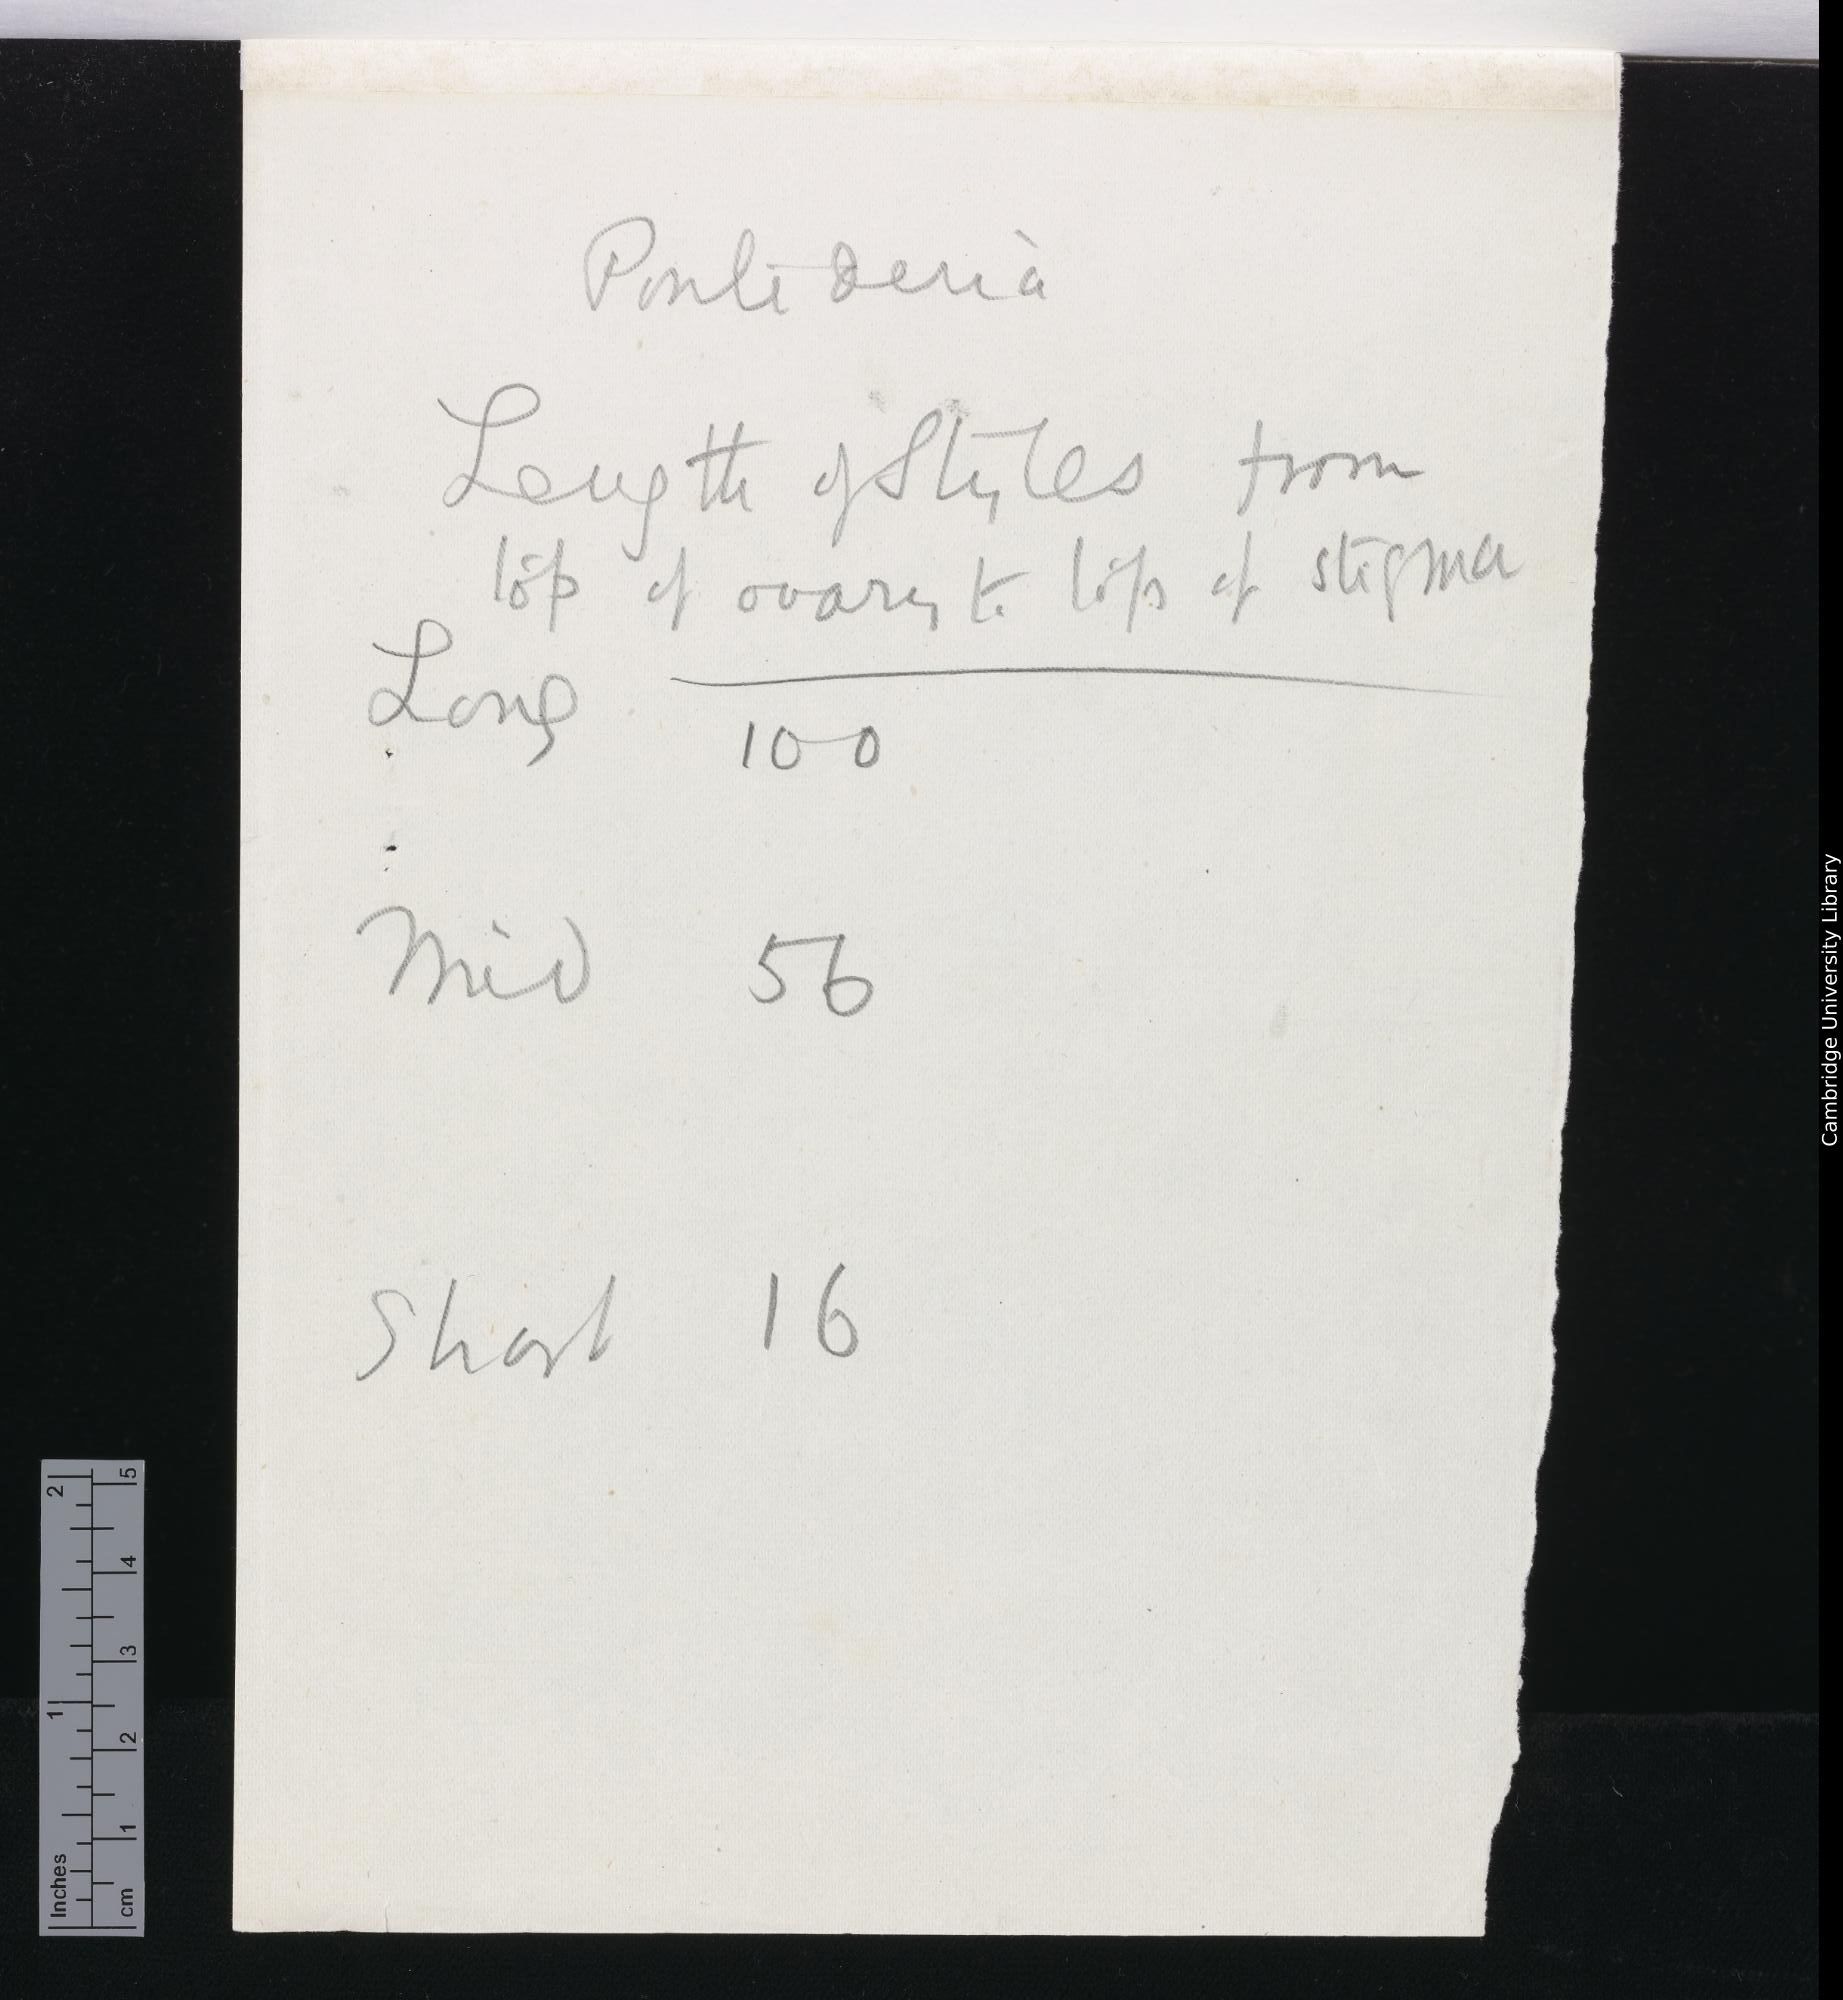 Pontederia
Length of Styles from
top of ovary to top of stigma
Long
100
Mid 56
Short 16
Inches 1 2
cm 1 2 3 4 5
Cambridge University Library